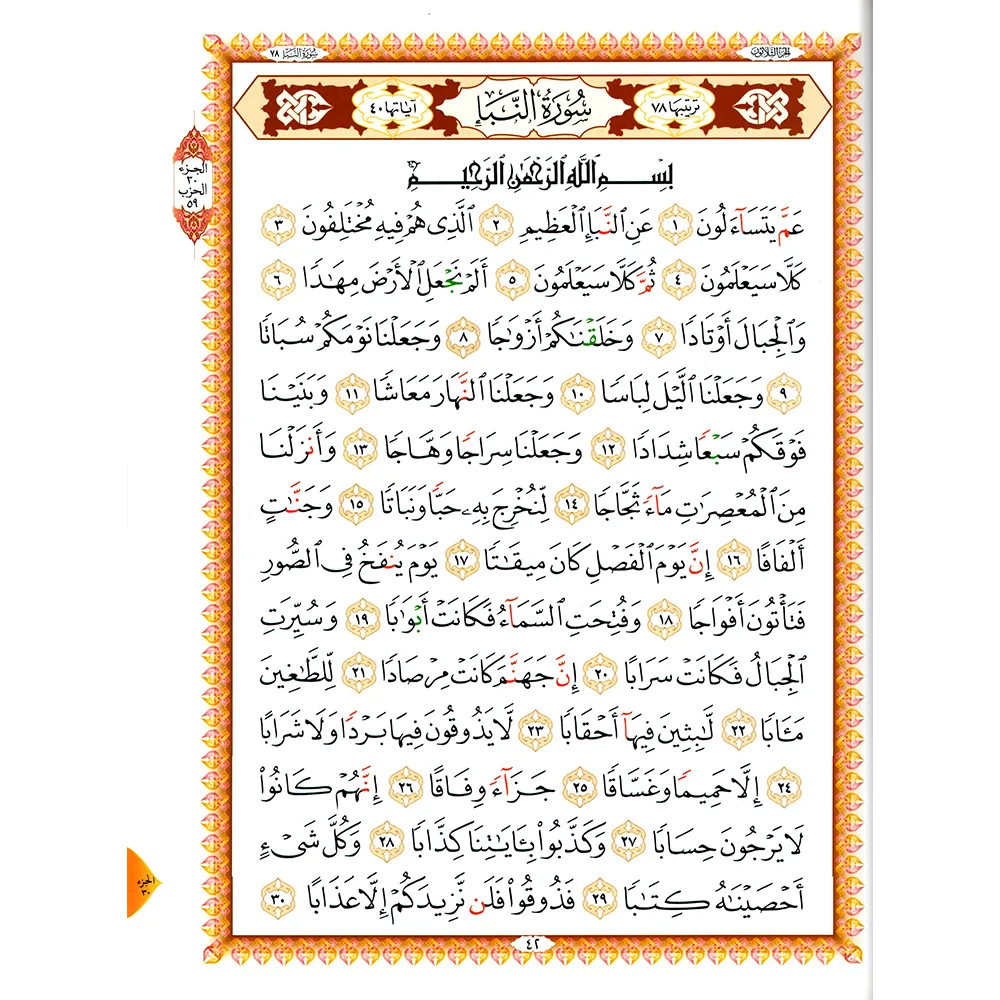 الجزء الثلاثون
سورة النبإ ٧٨
ترتيبها ٧٨
سُورَةُ النَّبَإِ
آياتها ٤٠
بِسْمِ ٱللَّهِ ٱلرَّحْمَٰنِ ٱلرَّحِيمِ
الجزء
٣٠
الحزب
٥٩
عَمَّ يَتَسَآءَلُونَ ١ عَنِ ٱلنَّبَإِ ٱلْعَظِيمِ ٢ ٱلَّذِى هُمْ فِيهِ مُخْتَلِفُونَ ٣
كَلَّا سَيَعْلَمُونَ ٤ ثُمَّ كَلَّا سَيَعْلَمُونَ ٥ أَلَمْ نَجْعَلِ ٱلْأَرْضَ مِهَٰدًا ٦
وَٱلْجِبَالَ أَوْتَادًا ٧ وَخَلَقْنَٰكُمْ أَزْوَٰجًا ٨ وَجَعَلْنَا نَوْمَكُمْ سُبَاتًا
٩ وَجَعَلْنَا ٱلَّيْلَ لِبَاسًا ١٠ وَجَعَلْنَا ٱلنَّهَارَ مَعَاشًا ١١ وَبَنَيْنَا
فَوْقَكُمْ سَبْعًا شِدَادًا ١٢ وَجَعَلْنَا سِرَاجًا وَهَّاجًا ١٣ وَأَنزَلْنَا
مِنَ ٱلْمُعْصِرَٰتِ مَآءً ثَجَّاجًا ١٤ لِّنُخْرِجَ بِهِۦ حَبًّا وَنَبَاتًا ١٥ وَجَنَّٰتٍ
أَلْفَافًا ١٦ إِنَّ يَوْمَ ٱلْفَصْلِ كَانَ مِيقَٰتًا ١٧ يَوْمَ يُنفَخُ فِى ٱلصُّورِ
فَتَأْتُونَ أَفْوَاجًا ١٨ وَفُتِحَتِ ٱلسَّمَآءُ فَكَانَتْ أَبْوَٰبًا ١٩ وَسُيِّرَتِ
ٱلْجِبَالُ فَكَانَتْ سَرَابًا ٢٠ إِنَّ جَهَنَّمَ كَانَتْ مِرْصَادًا ٢١ لِّلطَّٰغِينَ
مَـَٔابًا ٢٢ لَّٰبِثِينَ فِيهَآ أَحْقَابًا ٢٣ لَّا يَذُوقُونَ فِيهَا بَرْدًا وَلَا شَرَابًا
٢٤ إِلَّا حَمِيمًا وَغَسَّاقًا ٢٥ جَزَآءً وِفَاقًا ٢٦ إِنَّهُمْ كَانُوا۟
لَا يَرْجُونَ حِسَابًا ٢٧ وَكَذَّبُوا۟ بِـَٔايَٰتِنَا كِذَّابًا ٢٨ وَكُلَّ شَىْءٍ
أَحْصَيْنَٰهُ كِتَٰبًا ٢٩ فَذُوقُوا۟ فَلَن نَّزِيدَكُمْ إِلَّا عَذَابًا ٣٠
الجزء
٣٠
٤٢